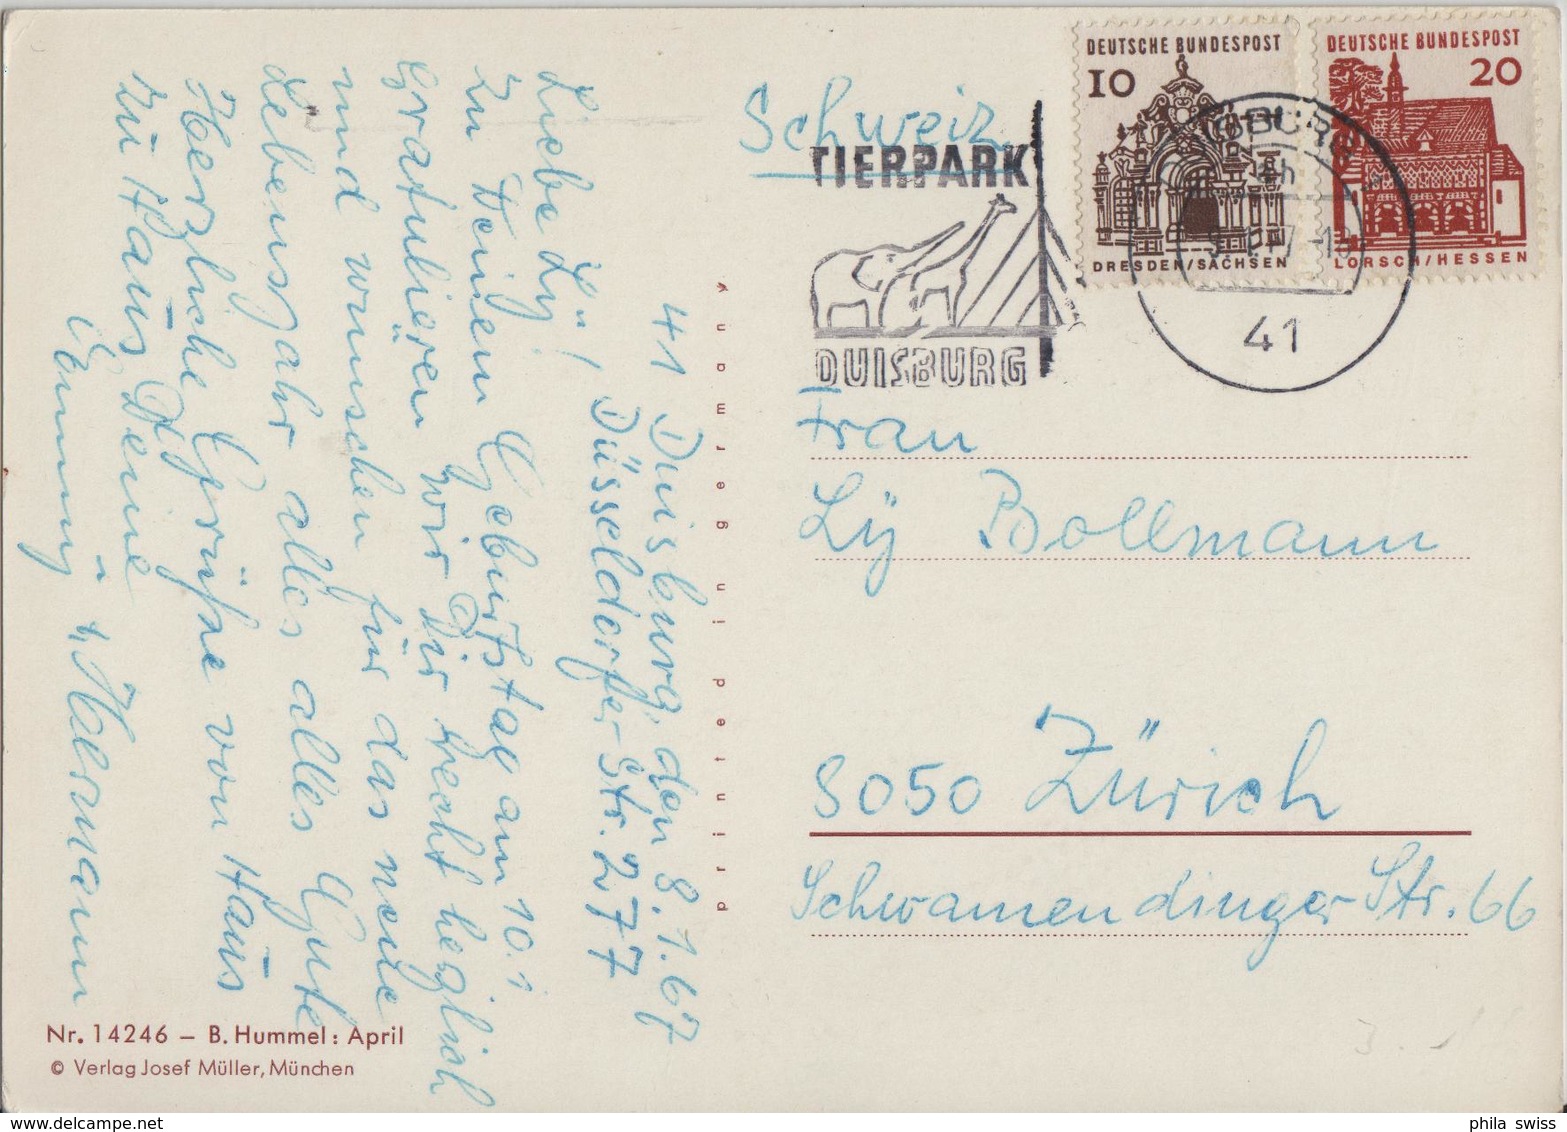 41 Duisburg, den 8.1.67
Düsseldorfer Str. 277
Liebe Ly!
Zu Deinem Geburtstag am 10.1
gratulieren wir Dir recht heglich
und wünschen für das neue
Lebensjahr alles alles Gute
Herzliche Grüße von Haus
zu Haus Deine
Hermann
Nr. 14246 – B. Hummel: April
© Verlag Josef Müller, München
printed in germany
Schweiz
TIERPARK
DUISBURG
DEUTSCHE BUNDESPOST
10
DRESDEN/SACHSEN
DEUTSCHE BUNDESPOST
20
LORSCH/HESSEN
41
Frau
Ly Bollmann
8050 Zürich
Schwamendinger Str. 66
phila swiss